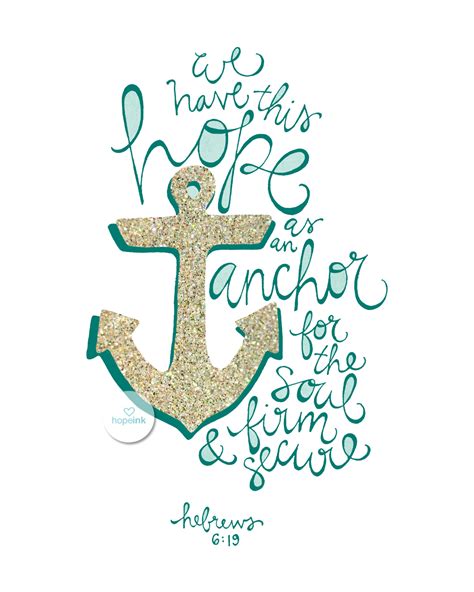 we
have this
hope
as
an
anchor
for
the
soul
firm
& secure
hebrews
6:19
hopeink